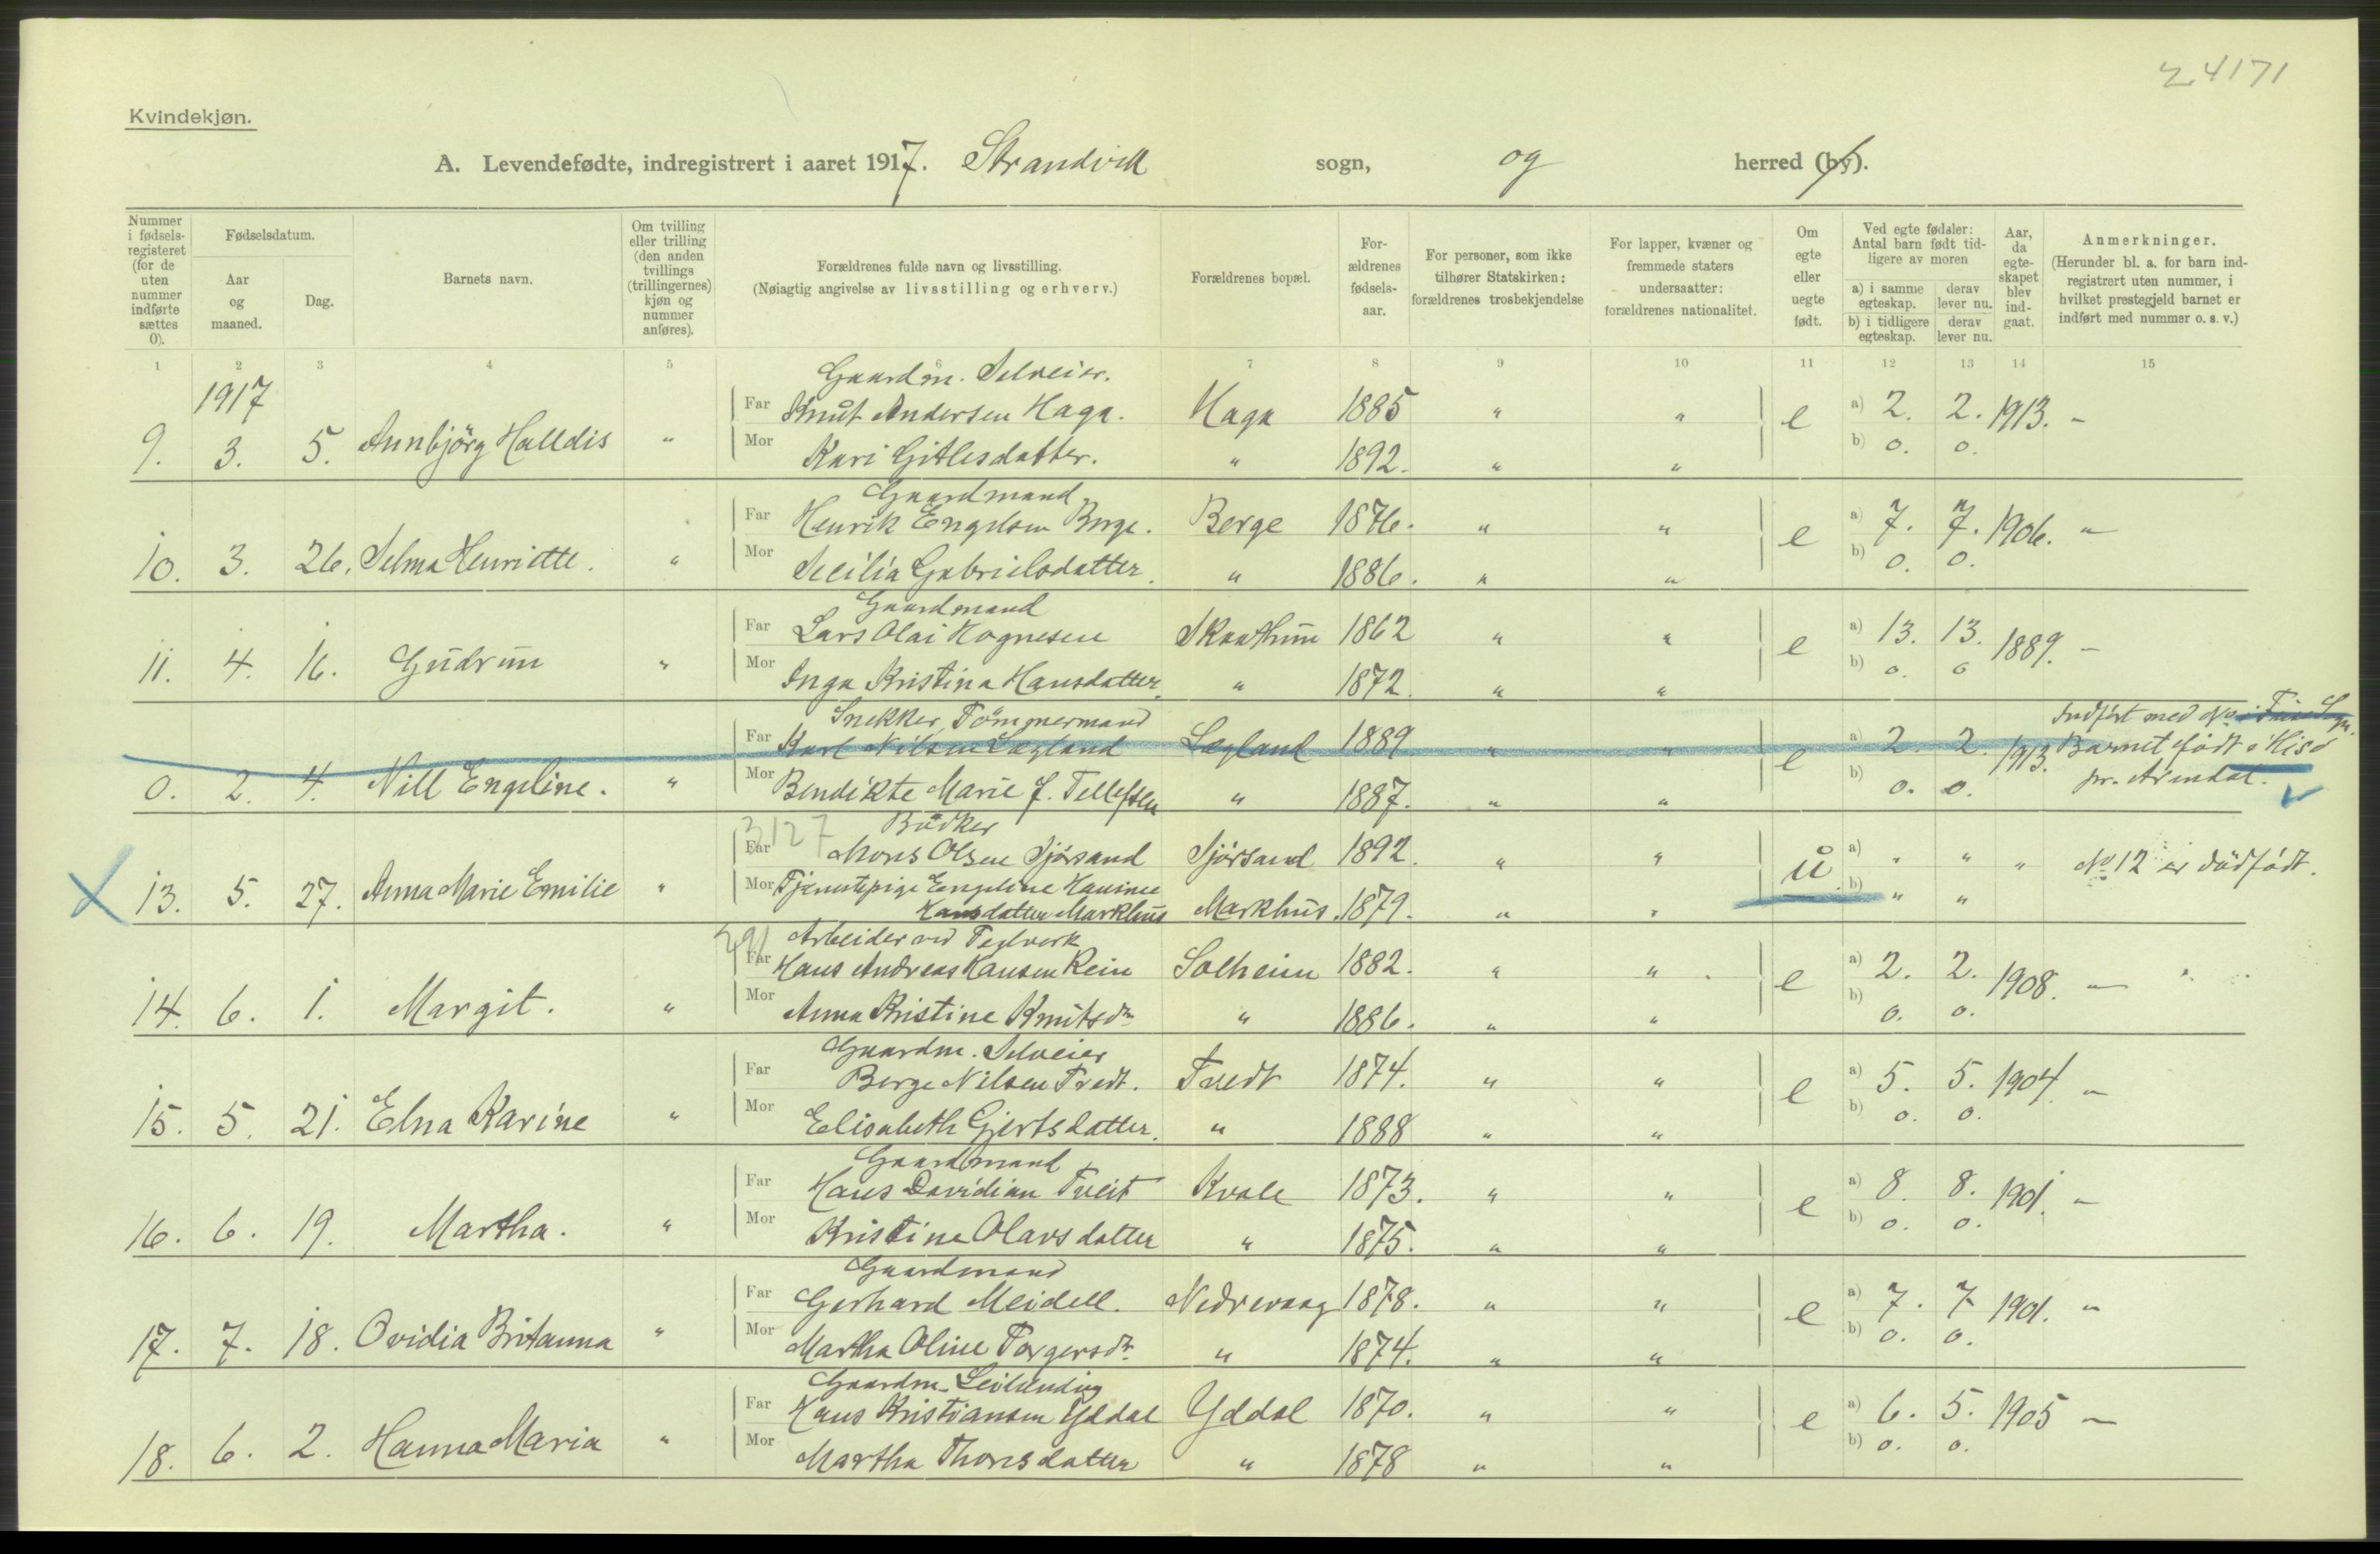 24171
Kvindekjøn.
A. Levendefødte, indregistrert i aaret 1917. Strandvik sogn, og herred (by).
Nummer i fødselsregisteret (for de uten nummer indførte sættes 0).
Fødselsdatum.
Aar og maaned.
Dag.
Barnets navn.
Om tvilling eller trilling (den anden tvillings (trillingernes) kjøn og nummer anføres).
Forældrenes fulde navn og livsstilling.
(Nøiagtig angivelse av livsstilling og erhverv.)
Forældrenes bopæl.
For-ældrenes fødsels-aar.
For personer, som ikke tilhører Statskirken: forældrenes trosbekjendelse
For lapper, kvæner og fremmede staters undersaatter: forældrenes nationalitet.
Om egte eller uegte født.
Ved egte fødsler: Antal barn født tid-ligere av moren
a) i samme egteskap.
derav lever nu.
b) i tidligere egteskap.
derav lever nu.
Aar, da egte-skapet blev ind-gaat.
Anmerkninger.
(Herunder bl. a. for barn ind-registrert uten nummer, i hvilket prestegjeld barnet er indført med nummer o. s. v.)
1 2 3 4 5 6 7 8 9 10 11 12 13 14 15
1917
Gaardm. Selveier.
Far Knut Andersen Haga. Haga 1885 " " a) 2. 2. 1913. -
9. 3. 5. Annbjörg Halldis " e
Mor Kari Gitlesdatter. " 1892. " " b) 0. 0.
Gaardmand
Far Henrik Engelsen Berge. Berge 1876. " " a) 7. 7. 1906. "
10. 3. 26. Selma Henriette. " e
Mor Secilia Gabrielsdatter. " 1886. " " b) 0. 0.
Gaardmand
Far Lars Olai Hognesen Skaathun 1862 " " a) 13. 13. 1889. -
11. 4. 16. Gudrun " e
Mor Inga Kristina Hansdatter. " 1872. " " b) 0. 0
Snekker, Tömmermand
Far Karl Nilsen Lægland Lægland 1889 " " a) 2. 2. 1913.
Indført med No i Sogn.
Barnet födt i Hisö pr. Arendal.
0. 2. 4. Nill Engeline. " e
Mor Bendikte Marie J. Tellefsen " 1887. " " b) 0. 0.
3127 Bödker
Far Mons Olsen Sjörsand Sjörsand 1892. " " a) " " " No 12 er dödfödt.
13. 5. 27. Anna Marie Emilie " u
Mor Tjenestepige Engeline Hansine
Hansdatter Markhus Markhus. 1879. " " b) " "
Arbeider ved Teglverk
Far Hans Andreas Hansen Rein Solheim 1882. " " a) 2. 2. 1908. -
14. 6. 1. Margit. " e
Mor Anna Kristine Knutsdr. " 1886. " " b) 0. 0.
Gaardm. Selveier
Far Berge Nilsen Tvedt. Tvedt 1874. " " a) 5. 5. 1904. -
15. 5. 21. Edna Karine " e
Mor Elisabeth Gjertsdatter. " 1888 " " b) 0. 0.
Gaardmand
Far Hans Davidian Tveit Kvale 1873. " " a) 8. 8. 1901. -
16. 6. 19. Martha. " e
Mor Kristine Olavsdatter " 1875. " " b) 0. 0.
Gaardmand
Far Gerhard Meidell. Nedrevaag 1878. " " a) 7. 7 1901. "
17. 7. 18. Ovidia Britanna " e
Mor Martha Oline Torgersdr. " 1874. " " b) 0. 0.
Gaardm. Leilending
Far Hans Kristiansen Yddal Yddal 1870. " " a) 6. 5. 1905 -
18. 6. 2. Hanna Maria " e
Mor Martha Thonesdatter " 1878 " " b) 0. 0.